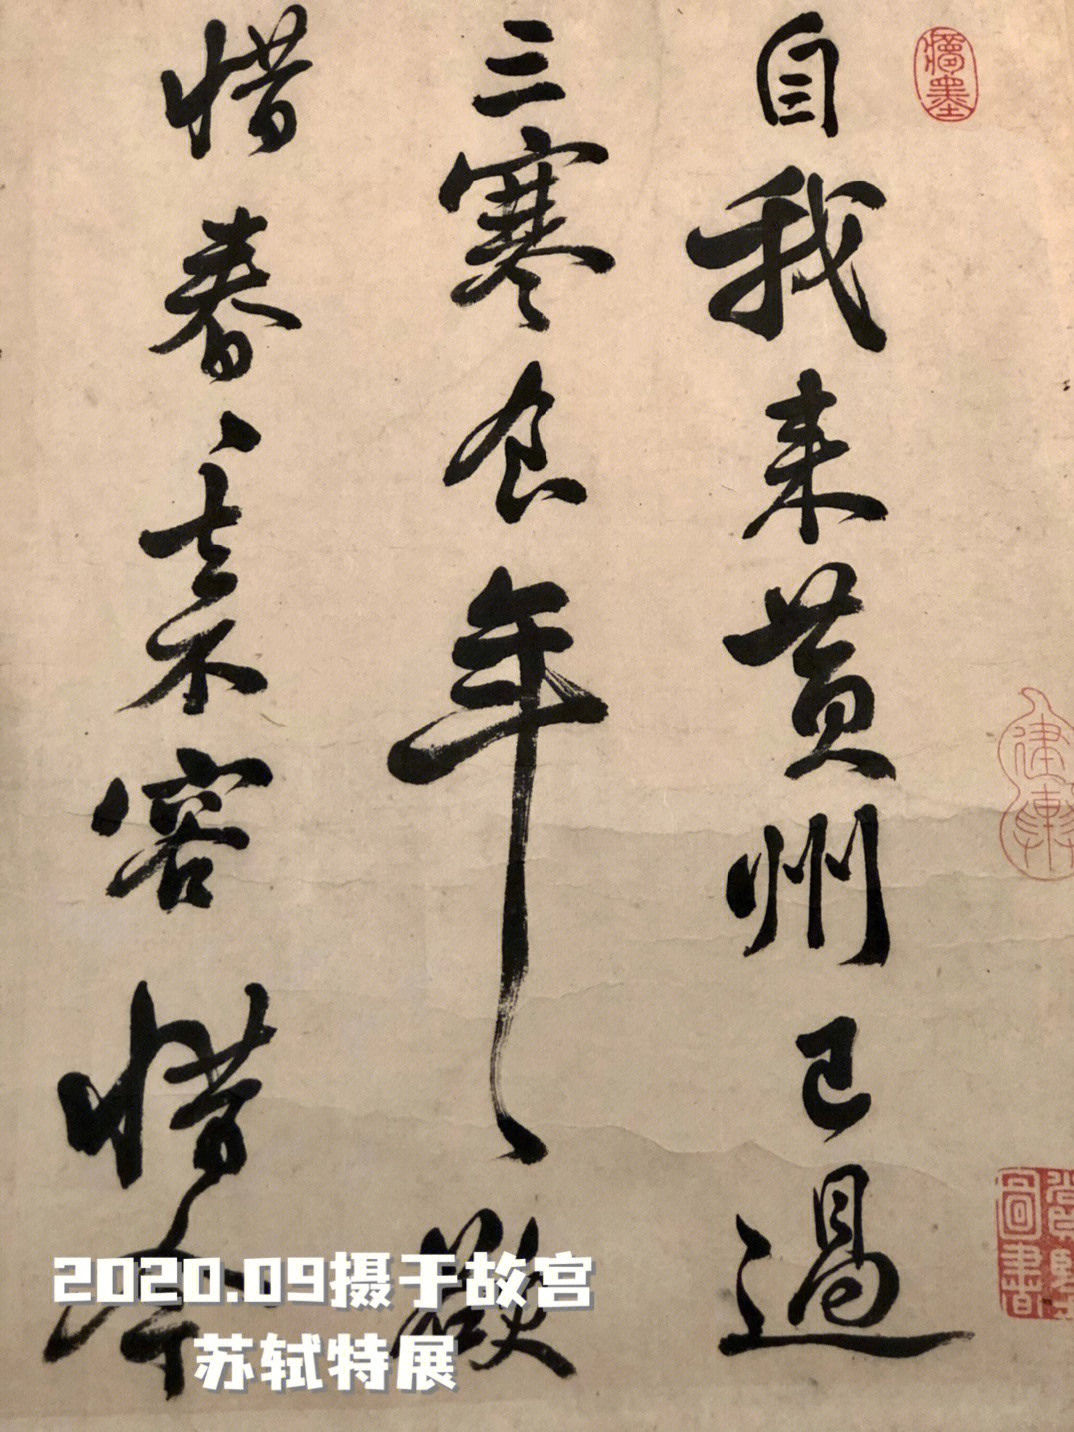 自我来黄州已過
三寒食年〻欲
惜春〻去不容惜今
2020.09摄于故宫
苏轼特展